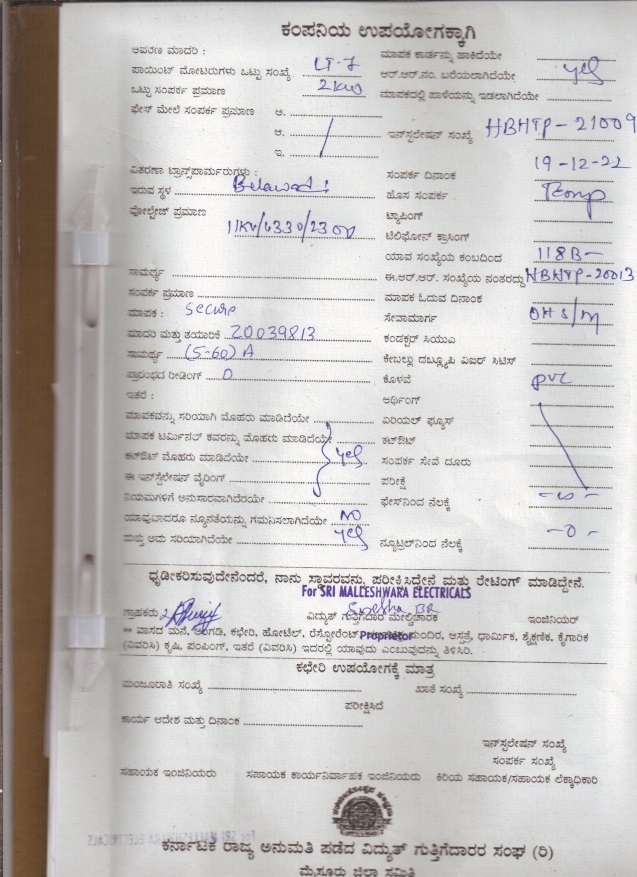 ಕಂಪನಿಯ ಉಪಯೋಗಕ್ಕಾಗಿ
ಆವರಣ ಮಾದರಿ : ಮಾಪಕ ಕಾರ್ಡನ್ನು ಹಾಕಿದೆಯೇ yes
ಪಾಯಿಂಟ್ ಮೋಟರುಗಳು ಒಟ್ಟು ಸಂಖ್ಯೆ LT-7 ಆರ್.ಆರ್.ನಂ. ಬರೆಯಲಾಗಿದೆಯೇ
ಒಟ್ಟು ಸಂಪರ್ಕ ಪ್ರಮಾಣ 2KW ಮಾಪಕದಲ್ಲಿ ಹಾಳೆಯನ್ನು ಇಡಲಾಗಿದೆಯೇ
ಫೇಸ್ ಮೇಲೆ ಸಂಪರ್ಕ ಪ್ರಮಾಣ ಅ.
ಆ. ಇನ್‌ಸ್ಟಲೇಷನ್ ಸಂಖ್ಯೆ HBHTP-21009
ಇ.
ವಿತರಣಾ ಟ್ರಾನ್ಸ್‌ಪಾರ್ಮರುಗಳು : ಸಂಪರ್ಕ ದಿನಾಂಕ 19-12-22
ಇರುವ ಸ್ಥಳ Belawadi ಹೊಸ ಸಂಪರ್ಕ Temp
ವೋಲ್ಟೇಜ್ ಪ್ರಮಾಣ 11KV/433V/230V ಟ್ಯಾಪಿಂಗ್
ಟೆಲಿಫೋನ್ ಕ್ರಾಸಿಂಗ್
ಯಾವ ಸಂಖ್ಯೆಯ ಕಂಬದಿಂದ 118B-
ಸಾಮರ್ಥ್ಯ ಈ.ಆರ್.ಆರ್. ಸಂಖ್ಯೆಯ ನಂತರದ್ದು HBHTP-20013
ಸಂಪರ್ಕ ಪ್ರಮಾಣ ಮಾಪಕ ಓದುವ ದಿನಾಂಕ
ಮಾಪಕ : secure ಸೇವಾಮಾರ್ಗ OH S/M
ಮಾದರಿ ಮತ್ತು ತಯಾರಿಕೆ 20039813 ಕಂಡಕ್ಟರ್ ಸಿಯುಎ
ಸಾಮರ್ಥ್ಯ (5-60) A ಕೇಬಲ್ಲು ಡಬ್ಲ್ಯೂಪಿ ವಿಐಆರ್ ಸಿಟಿಸ್
ಪ್ರಾರಂಭದ ರೀಡಿಂಗ್ 0 ಕೊಳವೆ PVC
ಇತರೆ : ಅರ್ಥಿಂಗ್
ಮಾಪಕವನ್ನು ಸರಿಯಾಗಿ ಮೊಹರು ಮಾಡಿದೆಯೇ ಏರಿಯಲ್ ಫ್ಯೂಸ್
ಮಾಪಕ ಟರ್ಮಿನಲ್ ಕವರನ್ನು ಮೊಹರು ಮಾಡಿದೆಯೇ ಕಟ್‌ಔಟ್
ಕಟ್‌ಔಟ್ ಮೊಹರು ಮಾಡಿದೆಯೇ yes ಸಂಪರ್ಕ ಸೇವೆ ದೂರು
ಈ ಇನ್‌ಸ್ಟಲೇಷನ್ ವೈರಿಂಗ್ ಪರೀಕ್ಷೆ
ನಿಯಮಗಳಿಗೆ ಅನುಸಾರವಾಗಿದೆರಯೇ ಫೇಸ್‌ನಿಂದ ನೆಲಕ್ಕೆ
ಯಾವುಬಾದರೂ ನ್ಯೂನತೆಯನ್ನು ಗಮನಿಸಲಾಗಿದೆಯೇ NO
ಮತ್ತು ಅದು ಸರಿಯಾಗಿದೆಯೇ yes ನ್ಯೂಟ್ರಲ್‌ನಿಂದ ನೆಲಕ್ಕೆ -0-
ಧೃಡೀಕರಿಸುವುದೇನೆಂದರೆ, ನಾನು ಸ್ಥಾವರವನು, ಪರೀಕ್ಷಿಸಿದ್ದೇನೆ ಮತ್ತು ರೇಟಿಂಗ್ ಮಾಡಿದ್ದೇನೆ.
For SRI MALLESHWARA ELECTRICALS
Suresha BR
ಗ್ರಾಹಕರು ವಿದ್ಯುತ್ ಗುತ್ತಿಗೆದಾರ ಮೇಲ್ವಿಚಾರಕ ಇಂಜಿನಿಯರ್
Proprietor
** ವಾಸದ ಮನೆ, ಅಂಗಡಿ, ಕಛೇರಿ, ಹೋಟೆಲ್, ರೆಸ್ಟೋರೆಂಟ್ ಮಂದಿರ, ಆಸ್ಪತ್ರೆ, ಧಾರ್ಮಿಕ, ಶೈಕ್ಷಣಿಕ, ಕೈಗಾರಿಕ
(ವಿವರಿಸಿ) ಕೃಷಿ, ಪಂಪಿಂಗ್, ಇತರೆ (ವಿವರಿಸಿ) ಇದರಲ್ಲಿ ಯಾವುದು ಎಂಬುವುದನ್ನು ತಿಳಿಸಿರಿ.
ಕಛೇರಿ ಉಪಯೋಗಕ್ಕೆ ಮಾತ್ರ
ಮಂಜೂರಾತಿ ಸಂಖ್ಯೆ ಖಾತೆ ಸಂಖ್ಯೆ
ಪರೀಕ್ಷಿಸಿದೆ
ಕಾರ್ಯ ಆದೇಶ ಮತ್ತು ದಿನಾಂಕ
ಇನ್‌ಸ್ಟಲೇಷನ್ ಸಂಖ್ಯೆ
ಸಂಪರ್ಕ ಸಂಖ್ಯೆ
ಸಹಾಯಕ ಇಂಜಿನಿಯರು ಸಹಾಯಕ ಕಾರ್ಯನಿರ್ವಾಹಕ ಇಂಜಿನಿಯರು ಕಿರಿಯ ಸಹಾಯಕ/ಸಹಾಯಕ ಲೆಕ್ಕಾಧಿಕಾರಿ
ಕರ್ನಾಟಕ ರಾಜ್ಯ ಅನುಮತಿ ಪಡೆದ ವಿದ್ಯುತ್ ಗುತ್ತಿಗೆದಾರರ ಸಂಘ (ರಿ)
ಮೈಸೂರು ಜಿಲ್ಲಾ ಸಮಿತಿ